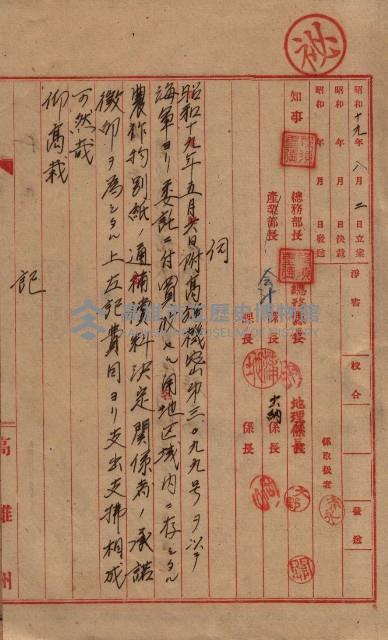 秘
昭和十九年八月二日立案
昭和 年 月 日決裁
昭和 年 月 日發送
淨書
校合
發送
係取扱者
知事
總務部長
產業部長
總務課長
課長
課長
地理係長
係長
係長
會計
出納
伺
昭和十九年五月六日附高雄機密第三〇九九号ヲ以テ
海軍ヨリ委託ニ付買收セル用地区域内ニ存シタル
農作物別紙ノ通補償料決定関係者ノ承諾
徵卯ヲ為シタル上左記費目ヨリ支出支拂相成
可然哉
仰高裁
記
高雄州
高雄市立歷史博物館